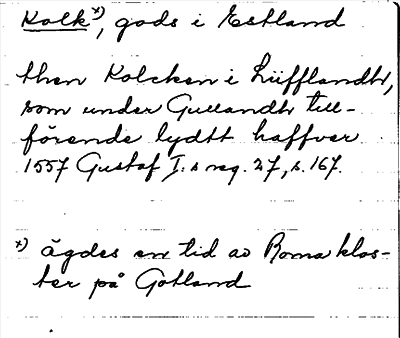 Kolk x), gods i Estland
then Kolcken i Lüfflandtr,
som under Gullandtr till-
förende lydtt haffver
1557 Gustaf I:s reg. 27, s. 167.
x) ägdes en tid av Roma klos-
ter på Gotland